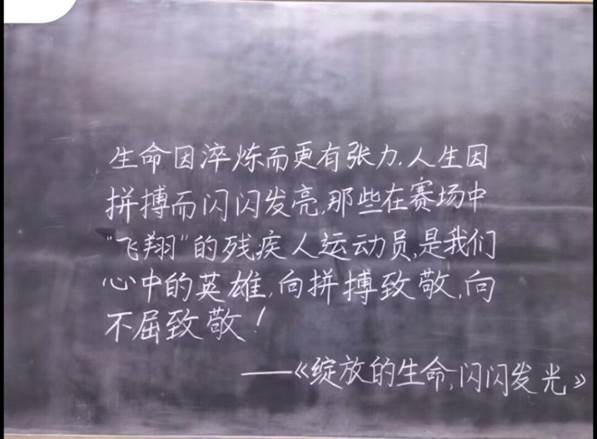 生命因淬炼而更有张力,人生因
拼搏而闪闪发亮,那些在赛场中
"飞翔"的残疾人运动员,是我们
心中的英雄,向拼搏致敬,向
不屈致敬!
——《绽放的生命,闪闪发光》